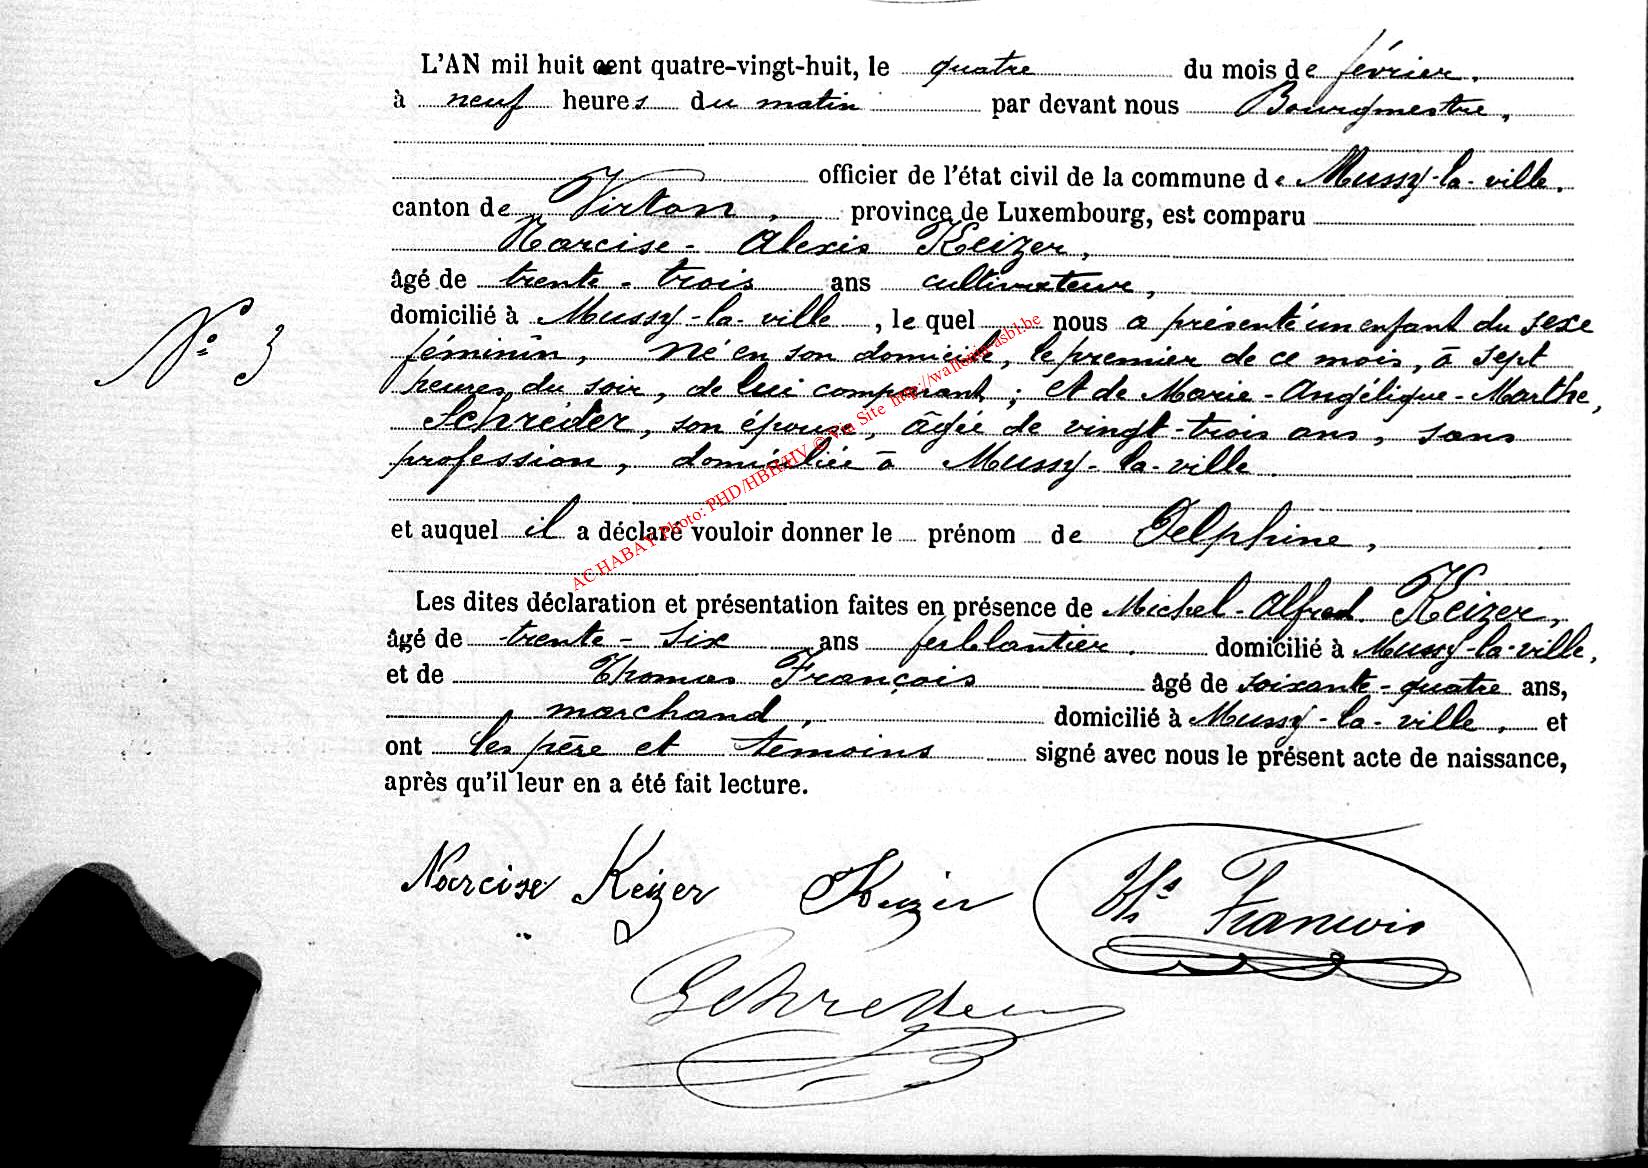 L'AN mil huit cent quatre-vingt-huit, le quatre du mois de février.
à neuf heures du matin par devant nous Bourgmestre,
officier de l'état civil de la commune de Mussy-la-ville.
canton de Virton, province de Luxembourg, est comparu
Narcise-Alexis Keizer,
âgé de trente-trois ans cultivateur,
domicilié à Mussy-la-ville, le quel nous a présenté un enfant du sexe
N° 3
féminin, né en son domicile, le premier de ce mois, à sept
heures du soir, de lui comparant; et de Marie-Angélique-Marthe,
Schréder, son épouse, âgée de vingt-trois ans, sans
profession, domiciliée à Mussy-la-ville.
et auquel il a déclaré vouloir donner le prénom de Delphine,
Les dites déclaration et présentation faites en présence de Michel-Alfred Keizer,
âgé de trente-six ans ferblantier. domicilié à Mussy-la-ville,
et de Thomas François âgé de soixante-quatre ans,
marchand, domicilié à Mussy-la-ville, et
ont les père et témoins signé avec nous le présent acte de naissance,
après qu'il leur en a été fait lecture.
Narcise Keizer Keizer Ths François
AC HABAY Photo: PHD/HBH/HV © Via Site http://wallonia-asbl.be